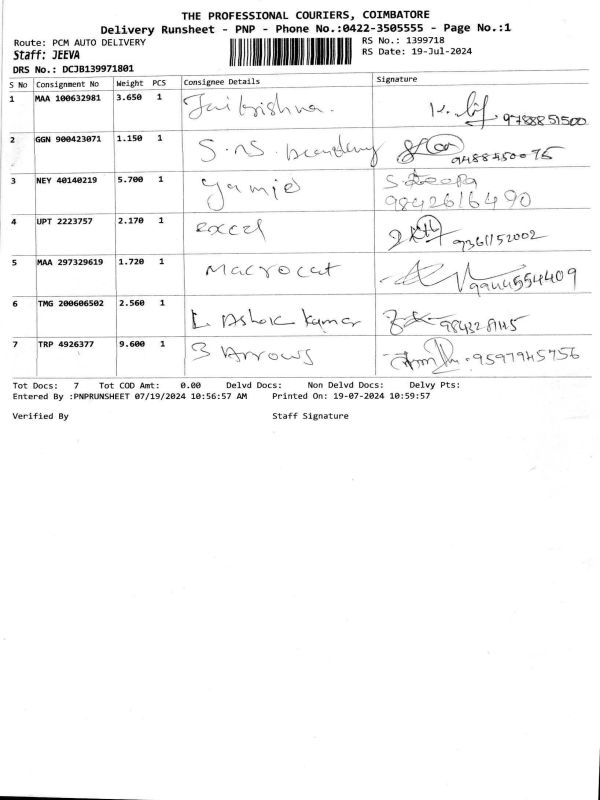 THE PROFESSIONAL COURIERS, COIMBATORE
Delivery Runsheet - PNP - Phone No.:0422-3505555 - Page No.:1
Route: PCM AUTO DELIVERY RS No.: 1399718
Staff: JEEVA RS Date: 19-Jul-2024
DRS No.: DCJB139971801
S No Consignment No Weight PCS Consignee Details Signature
1 MAA 100632981 3.650 1 Jaikrishna. 9788851500
2 GGN 900423071 1.150 1 S.NS. Academy
3 NEY 40140219 5.700 1 9842616490
4 UPT 2223757 2.170 1 excel 9361152002
5 MAA 297329619 1.720 1 Macrocat 9944554409
6 TMG 200606502 2.560 1 L Ashok Kumar
7 TRP 4926377 9.600 1 3 Arrows 9597945756
Tot Docs: 7 Tot COD Amt: 0.00 Delvd Docs: Non Delvd Docs: Delvy Pts:
Entered By :PNPRUNSHEET 07/19/2024 10:56:57 AM Printed On: 19-07-2024 10:59:57
Verified By Staff Signature